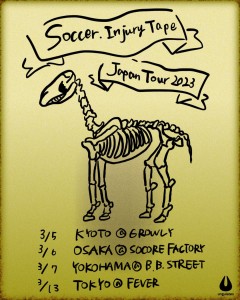 Soccer. Injury Tape
Japan Tour 2023
3/5 KYOTO @ GROWLY
3/6 OSAKA @ SOCORE FACTORY
3/7 YOKOHAMA @ B.B. STREET
3/13 TOKYO @ FEVER